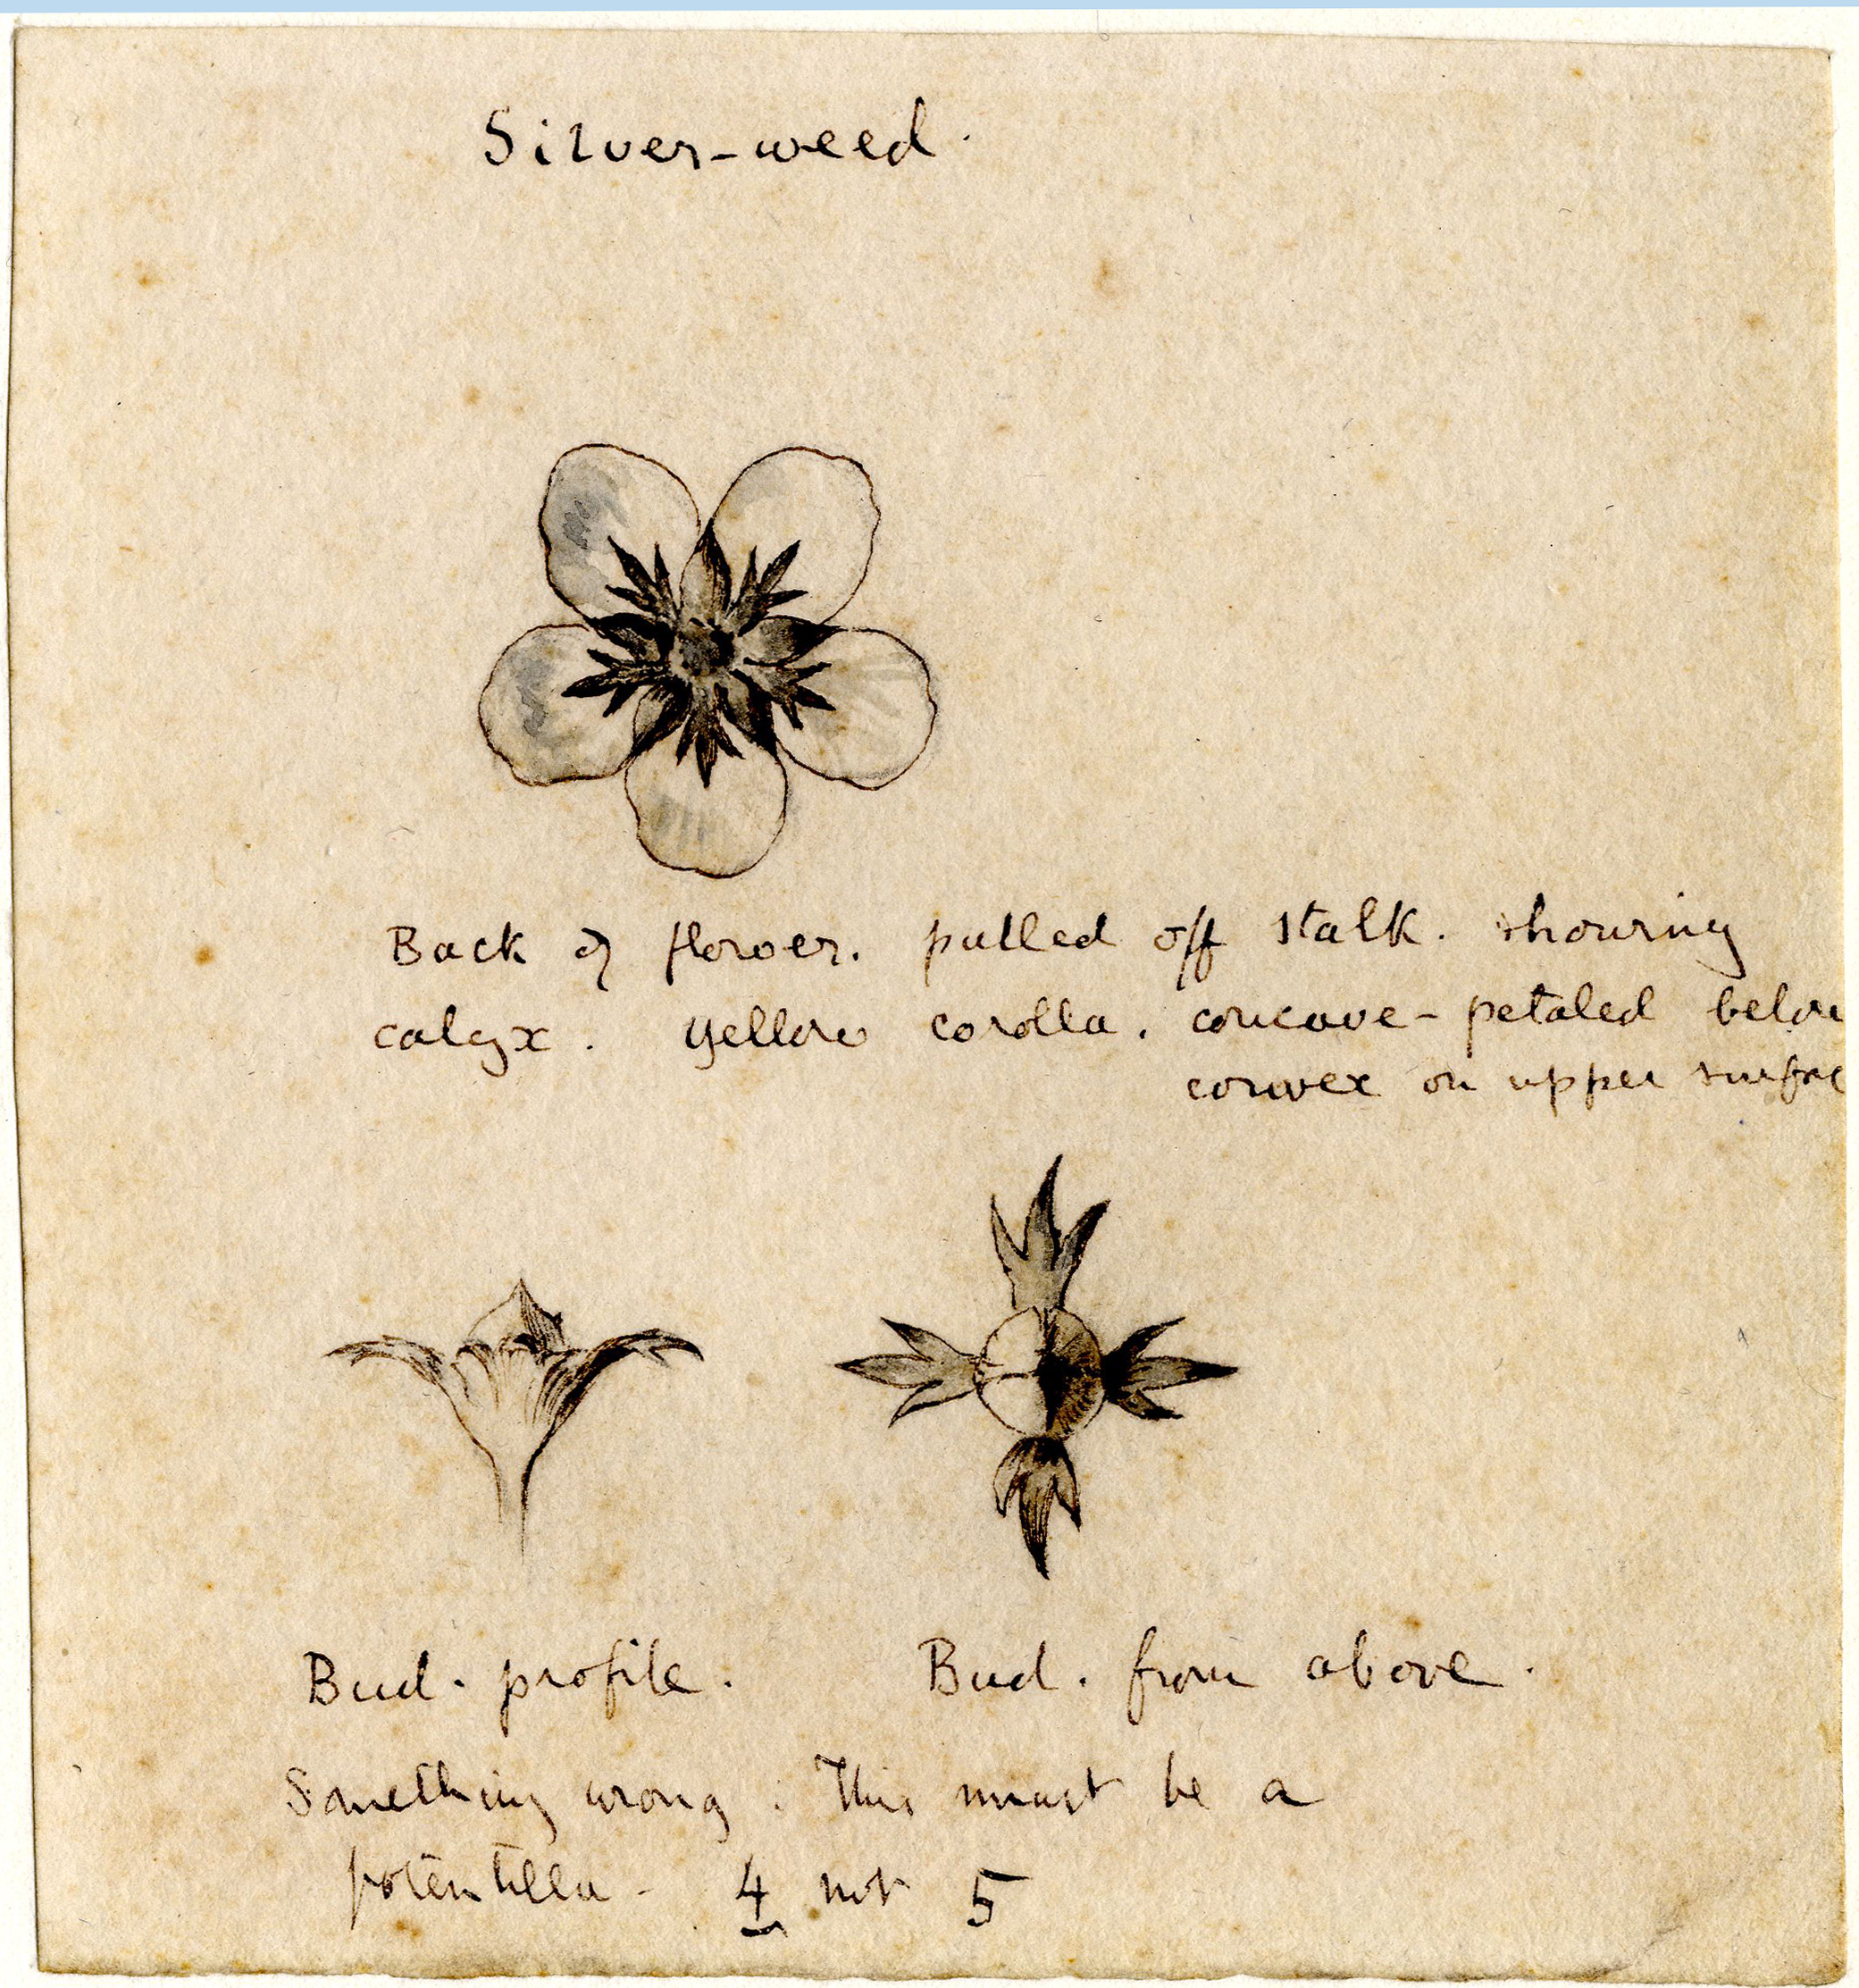 Silver-weed.
Back of flower. pulled off stalk. showing
calyx. yellow corolla. concave-petaled below
convex on upper surfac
Bud. profile.
Bud. from above.
Something wrong: This must be a
potentilla - 4 not 5